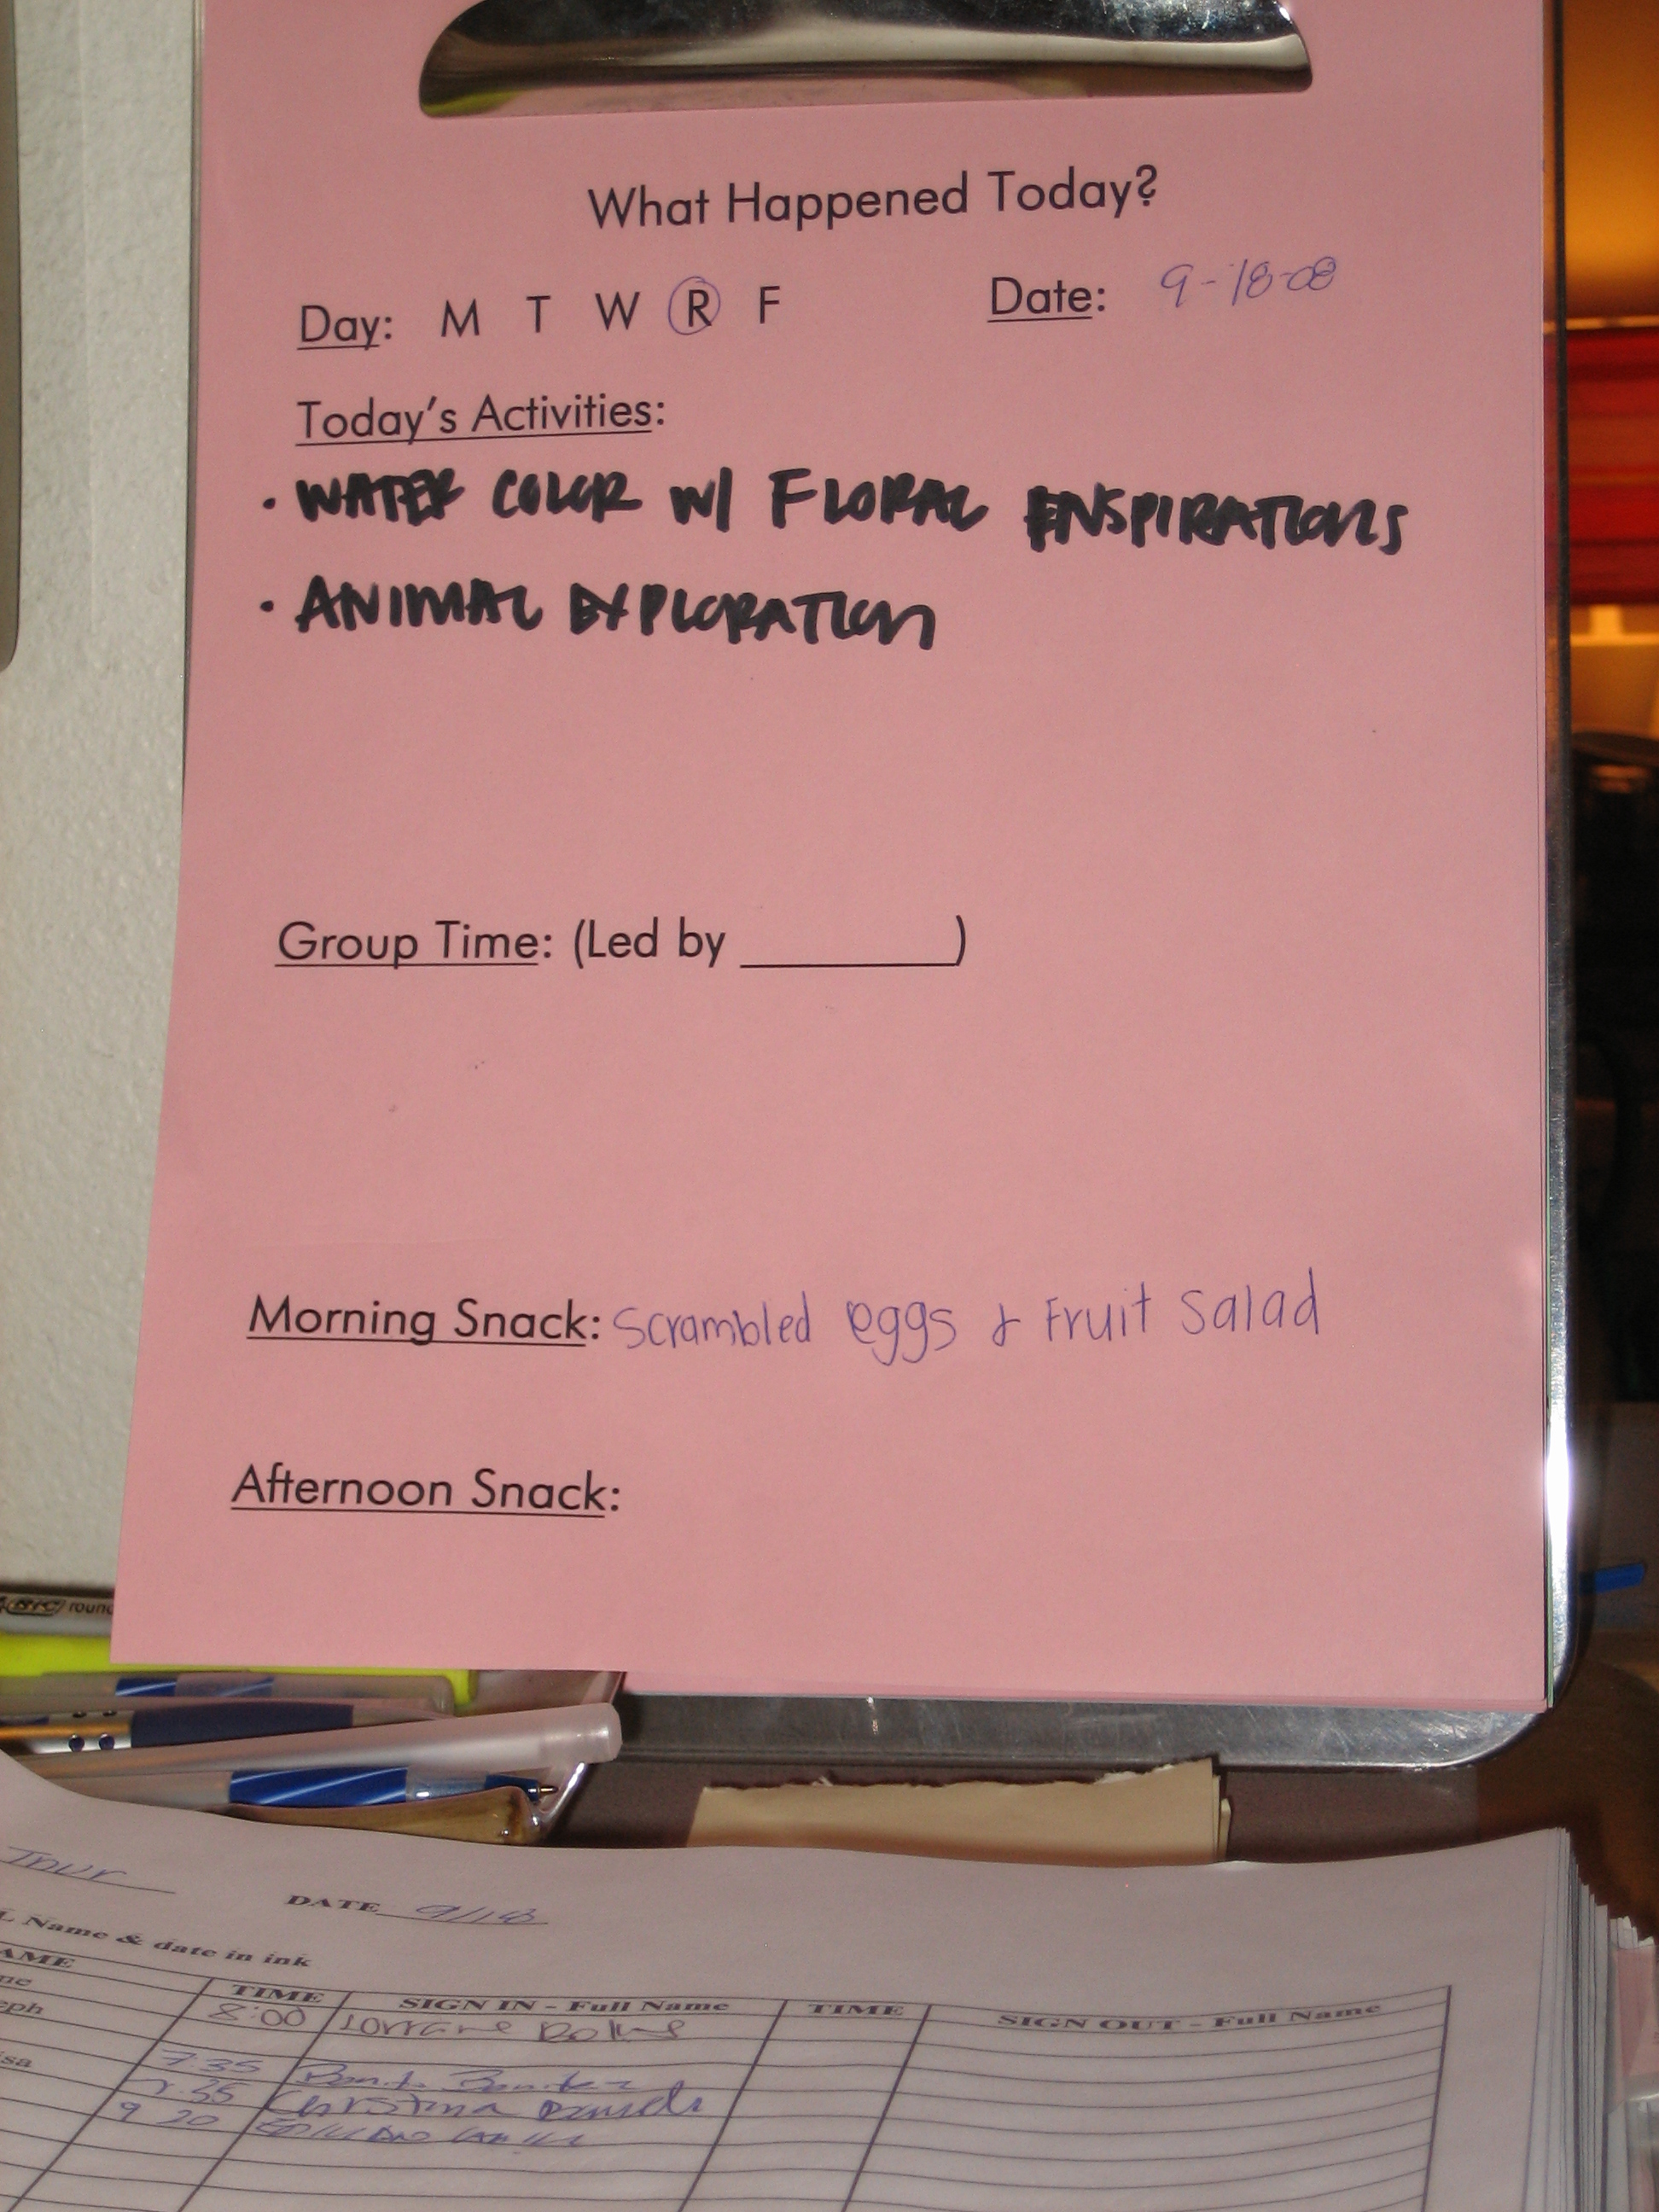 What Happened Today?
Day: M T W R F Date: 9-18-08
Today's Activities:
· WATER COLOR W/ FLORAL ENSPIRATIONS
· ANIMAL EXPLORATION
Group Time: (Led by ________)
Morning Snack: Scrambled eggs & Fruit Salad
Afternoon Snack:
BIC round
Thur DATE 9/18
Name & date in ink
AME TIME SIGN IN - Full Name TIME SIGN OUT - Full Name
8:00 Lorraine
eph
7:35
isa 7:55 Christina
9 20